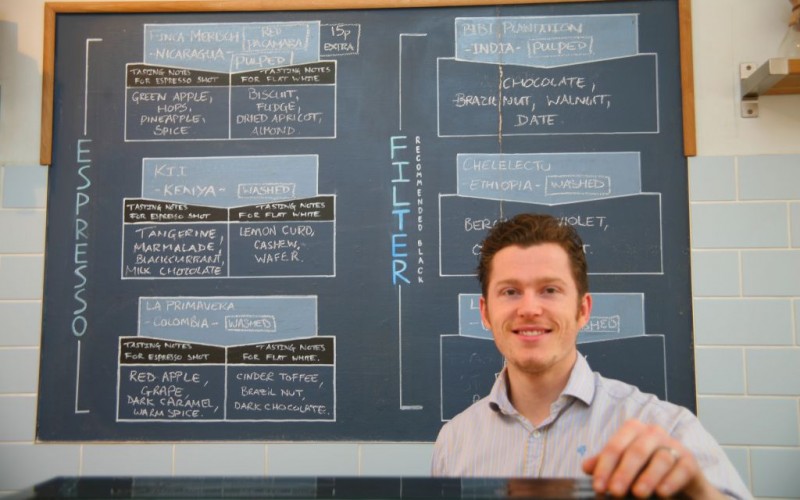 ESPRESSO
-NICARAGUA- PULPED
RED
PACAMARA
15p
EXTRA
TASTING NOTES
FOR ESPRESSO SHOT
GREEN APPLE,
HOPS,
PINEAPPLE,
SPICE
TASTING NOTES
FOR FLAT WHITE
BISCUIT,
FUDGE,
DRIED APRICOT,
ALMOND.
-KENYA- WASHED
TASTING NOTES
FOR ESPRESSO SHOT
TANGERINE,
MARMALADE,
BLACKCURRANT,
MILK CHOCOLATE
TASTING NOTES
FOR FLAT WHITE
LEMON CURD,
CASHEW,
WAFER.
LA PRIMAVERA
-COLOMBIA- WASHED
TASTING NOTES
FOR ESPRESSO SHOT
RED APPLE,
GRAPE,
DARK CARAMEL,
WARM SPICE.
TASTING NOTES
FOR FLAT WHITE.
CINDER TOFFEE,
BRAZIL NUT,
DARK CHOCOLATE.
FILTER
RECOMMENDED BLACK
BIBI PLANTATION
-INDIA- PULPED
CHOCOLATE,
BRAZIL NUT, WALNUT,
DATE.
CHELELECTU
ETHIOPIA- WASHED